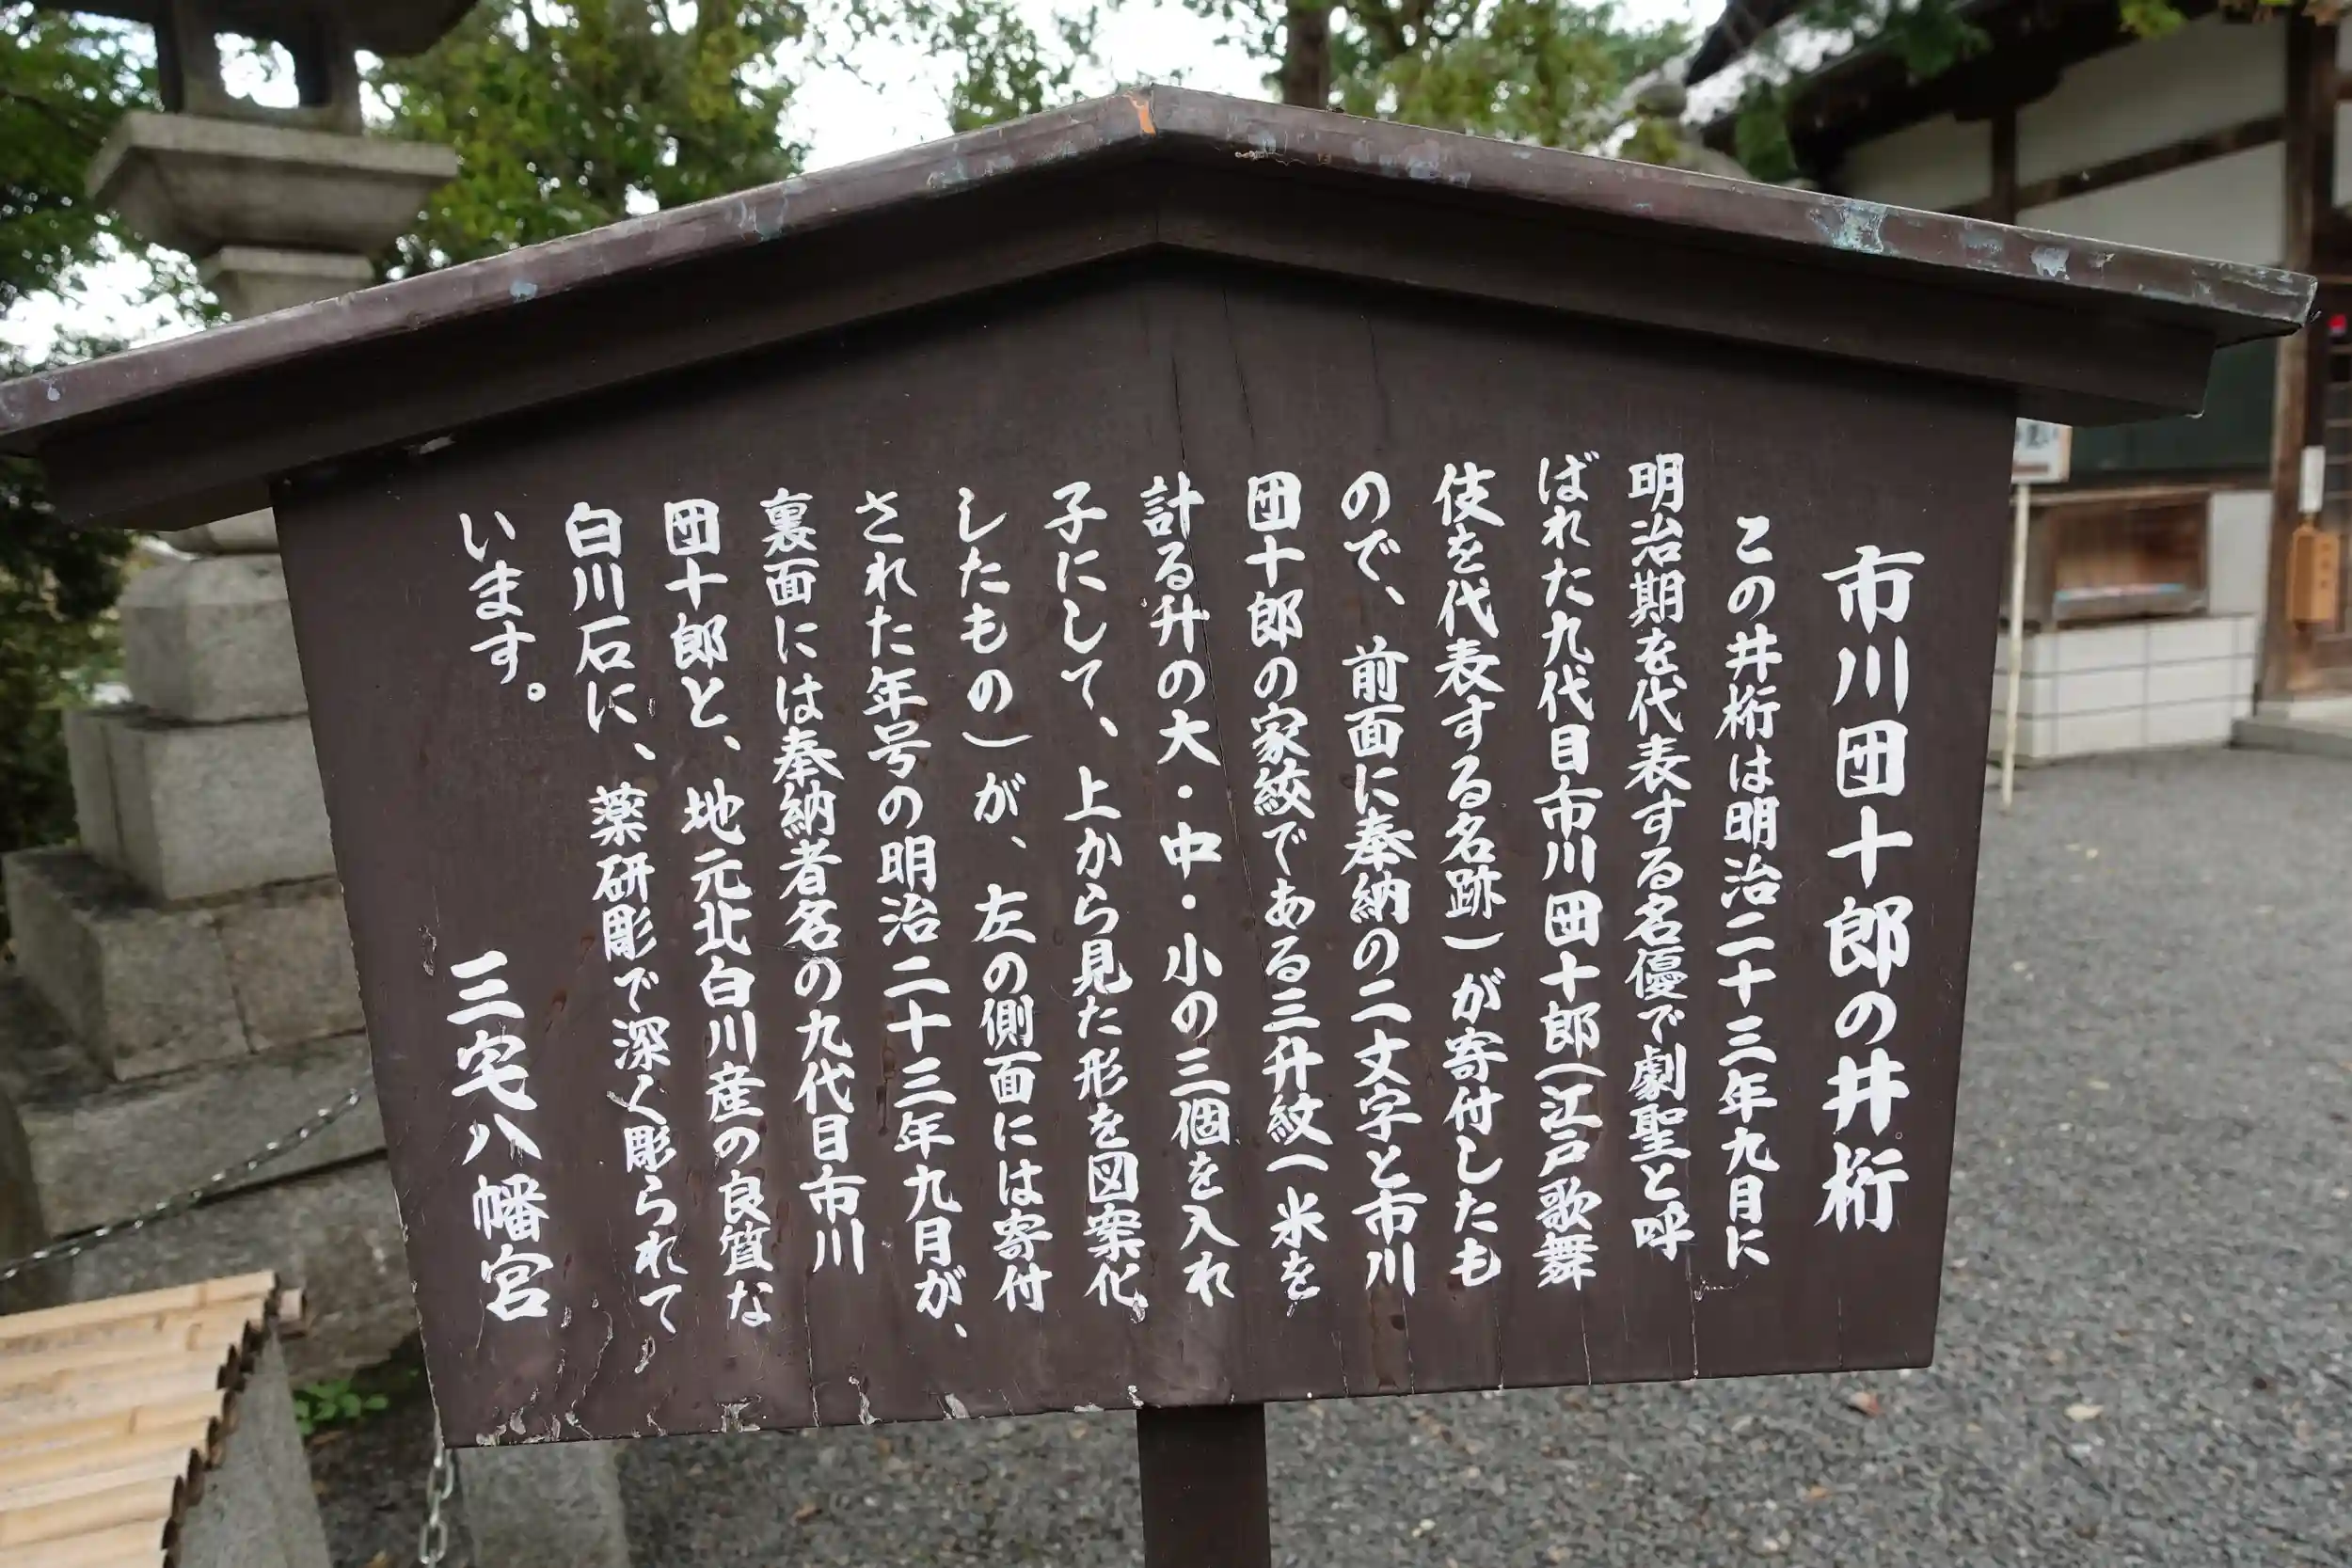 市川団十郎の井桁
この井桁は明治二十三年九月に
明治期を代表する名優で劇聖と呼
ばれた九代目市川団十郎(江戸歌舞
伎を代表する名跡)が寄付したも
ので、前面に奉納の二文字と市川
団十郎の家紋である三升紋(米を
計る升の大・中・小の三個を入れ
子にして、上から見た形を図案化
したもの)が、左の側面には寄付
された年号の明治二十三年九月が、
裏面には奉納者名の九代目市川
団十郎と、地元北白川産の良質な
白川石に、薬研彫で深く彫られて
います。
三宅八幡宮